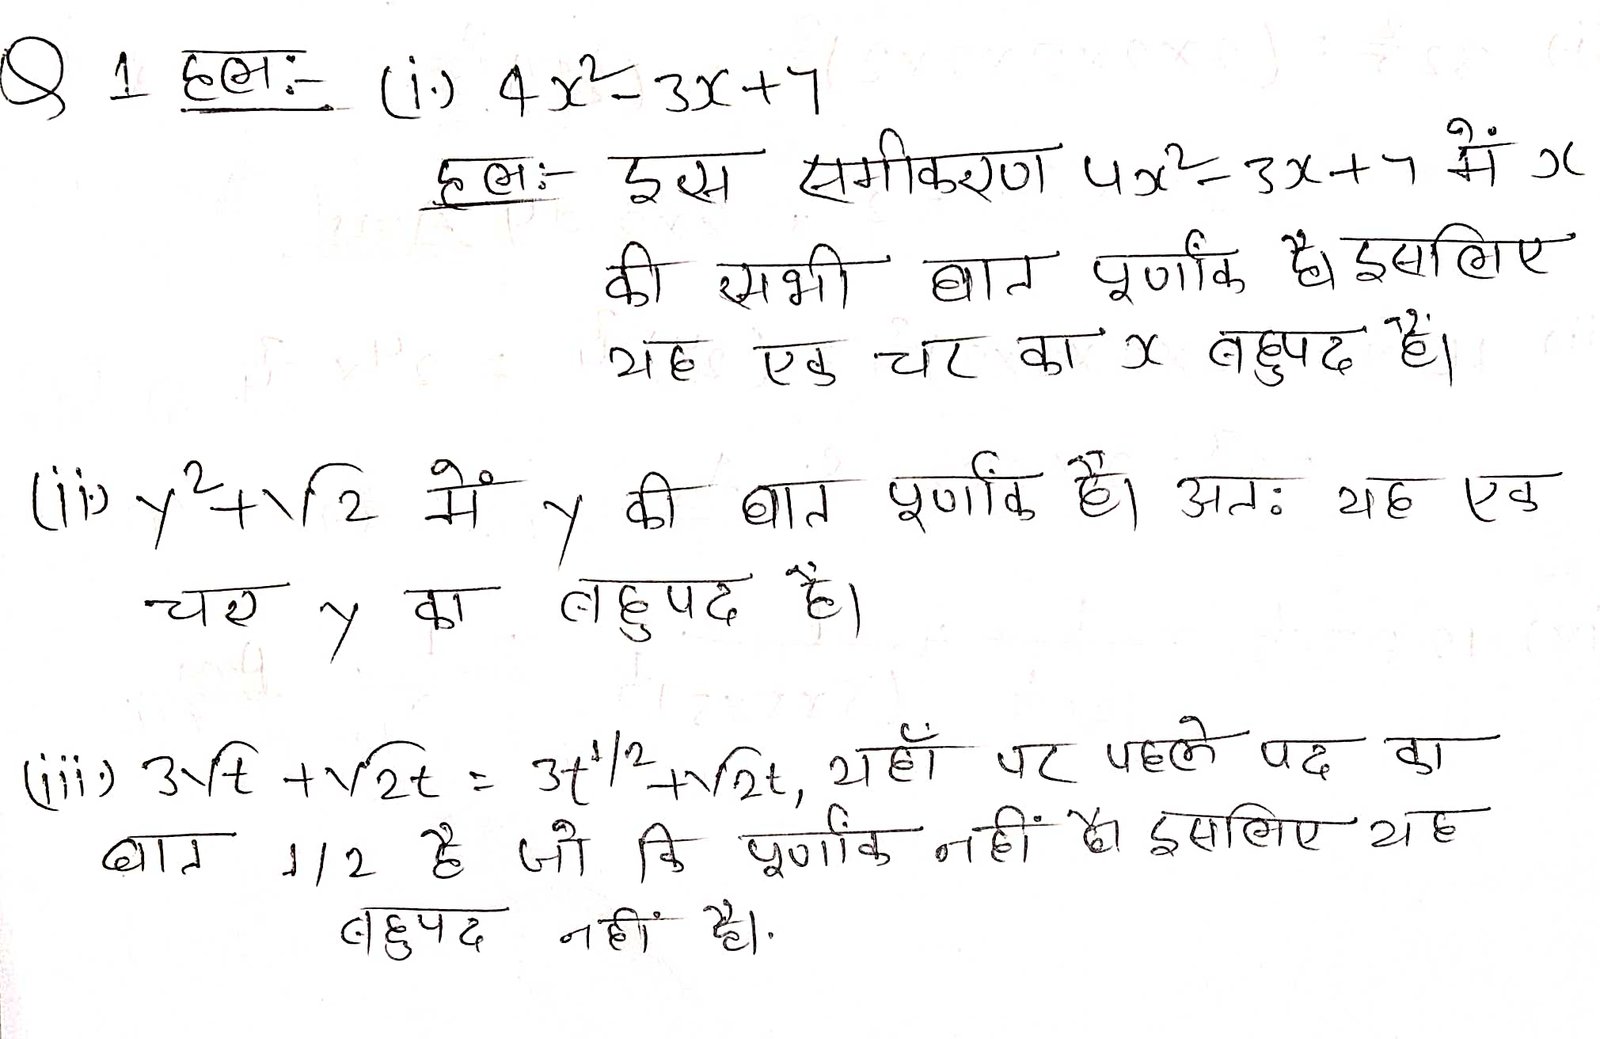 Q 1 हल:- (i.) 4x²-3x+7
हल:- इस समीकरण 4x²-3x+7 में x
की सभी घात पूर्णांक है। इसलिए
यह एक चर का x बहुपद हैं।
(ii) y²+√2 में y की घात पूर्णांक हैं। अतः यह एक
चर y का बहुपद हैं।
(iii.) 3√t +√2t = 3t^1/2+√2t, यहाँ पर पहले पद का
घात 1/2 है जो कि पूर्णांक नहीं है। इसलिए यह
बहुपद नहीं है।.